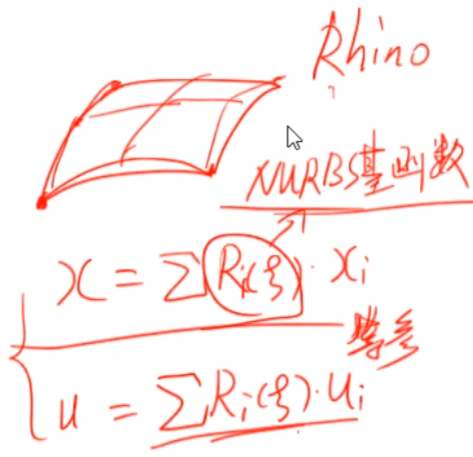 Rhino
NURBS基函数
x = ΣRi(ξ)·xi
等参
u = ΣRi(ξ)·ui